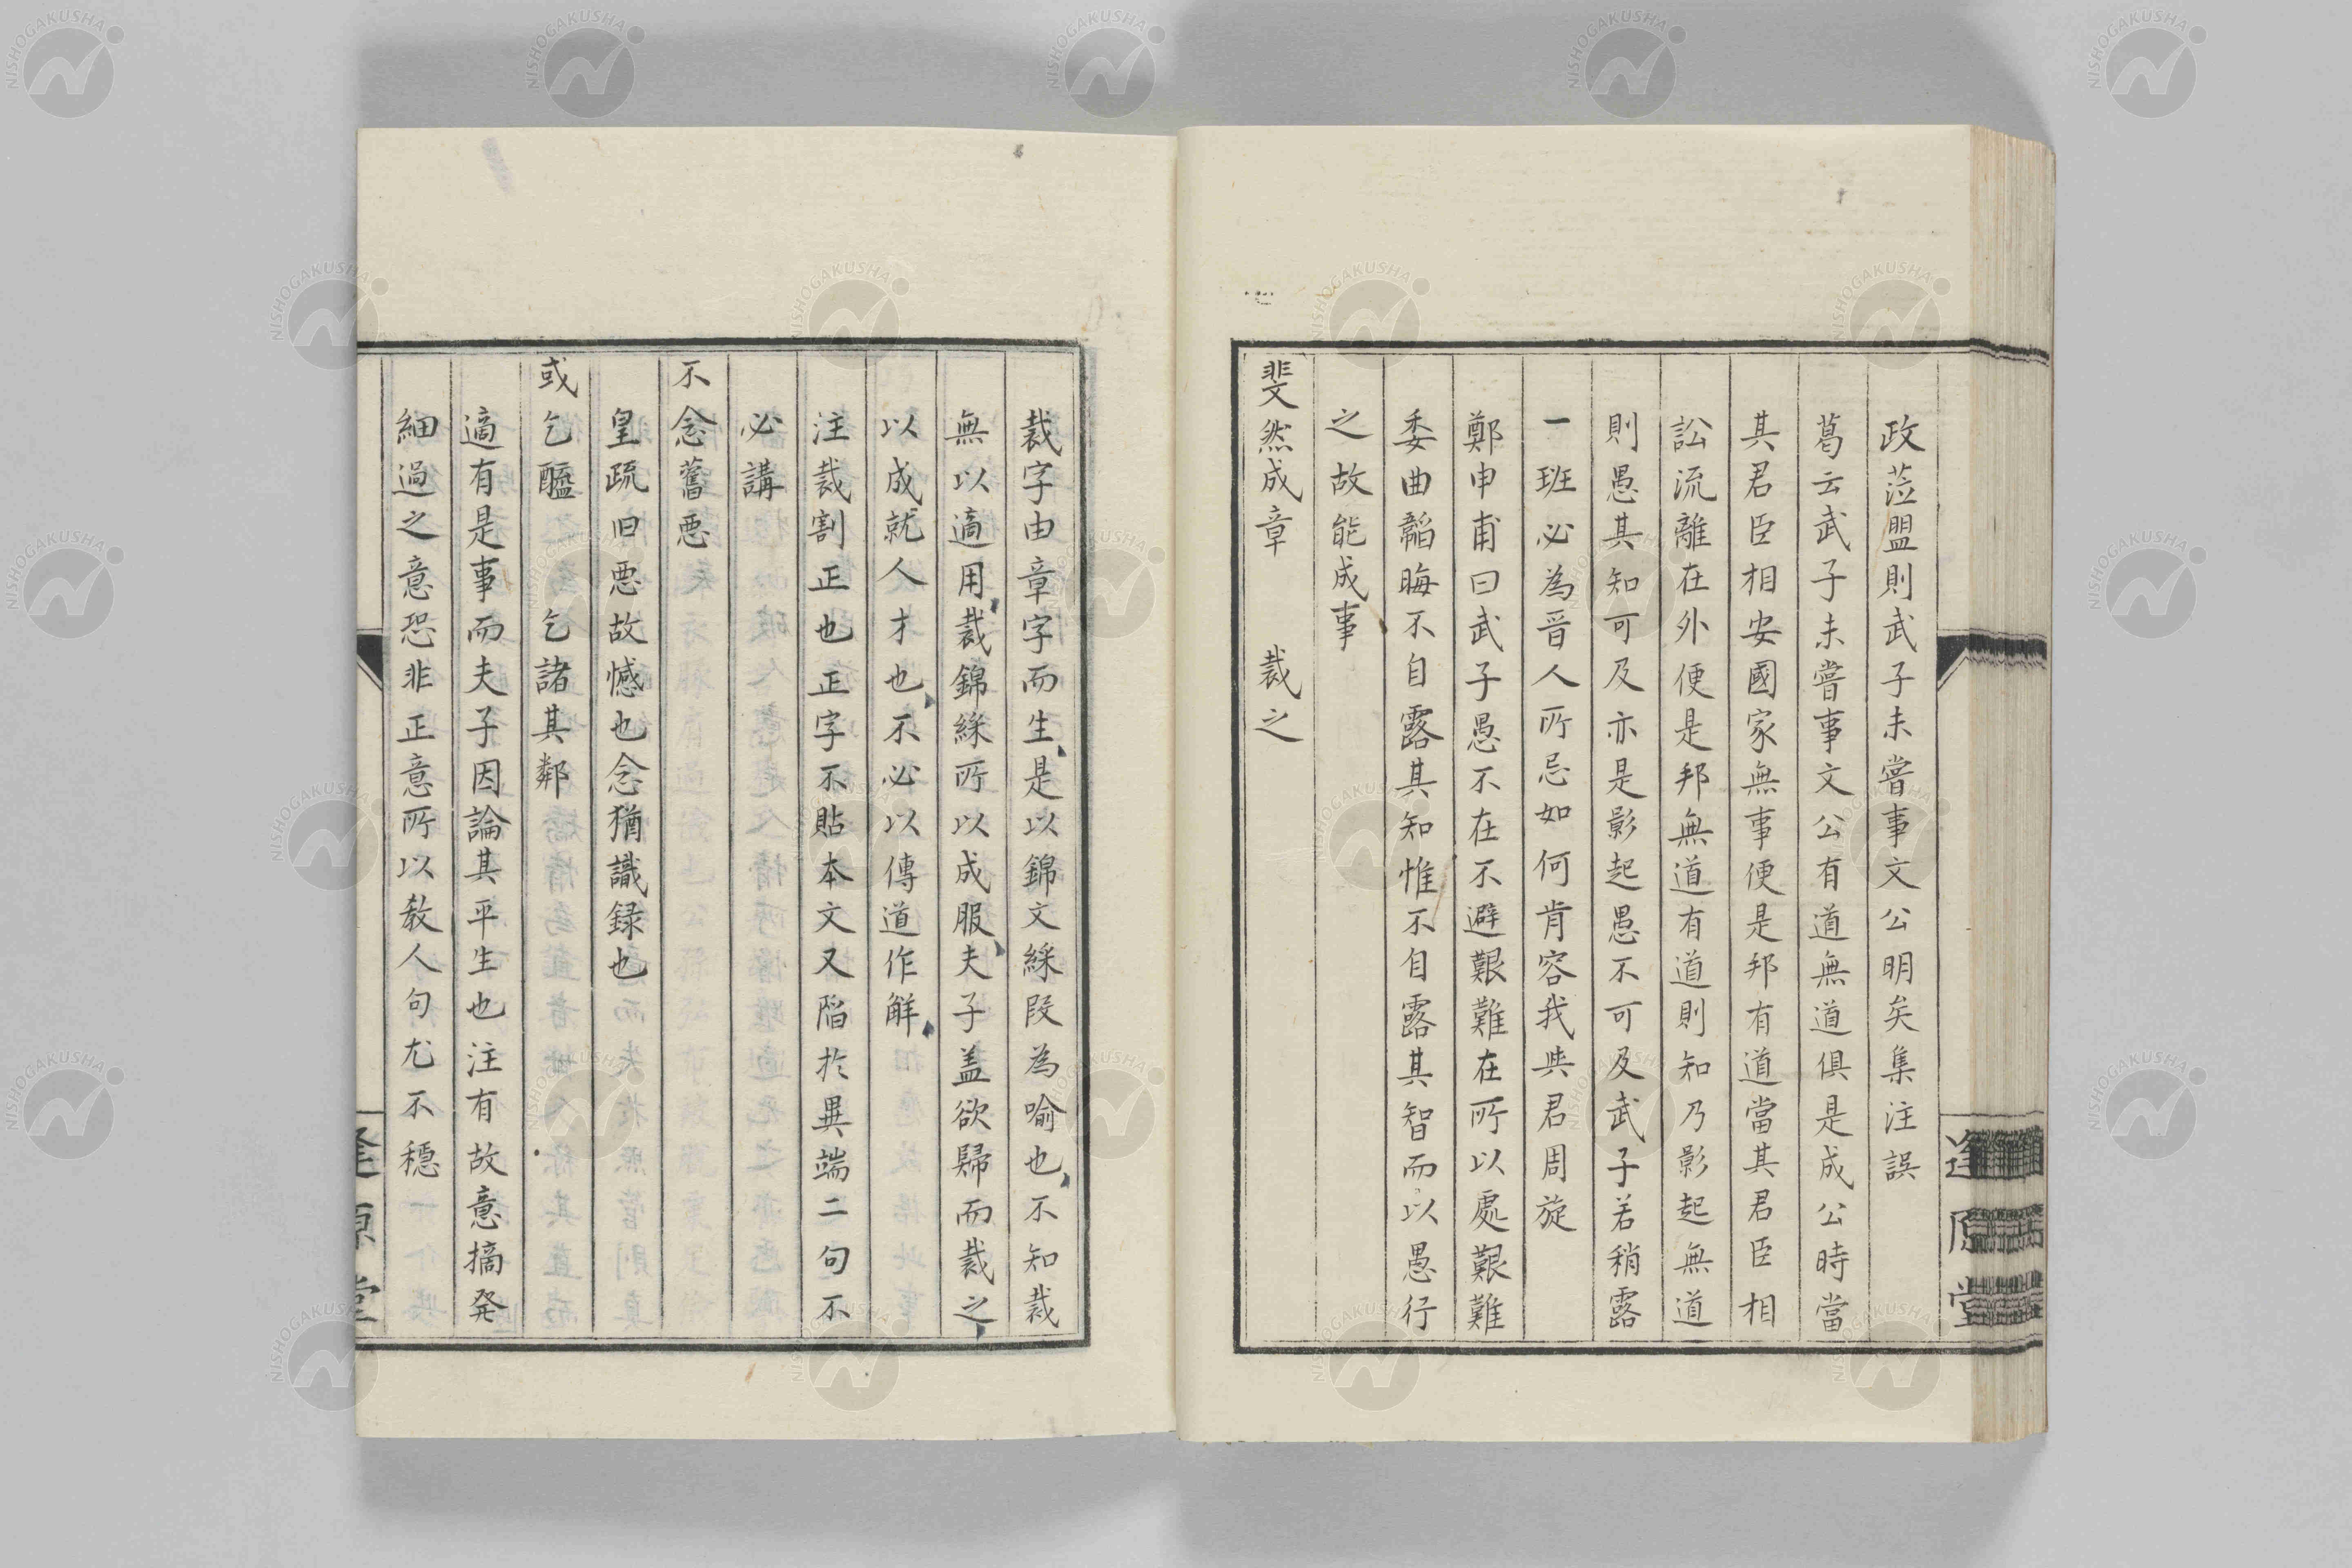 政蒞盟則武子未嘗事文公明矣集注誤
葛云武子未嘗事文公有道無道俱是成公時當
其君臣相安國家無事便是邦有道當其君臣相
訟流離在外便是邦無道有道則知乃影起無道
則愚其知可及亦是影起愚不可及武子若稍露
一班必為晋人所忌如何肯容我與君周旋
鄭申甫曰武子愚不在不避艱難在所以處艱難
委曲韜晦不自露其知惟不自露其智而以愚行
之故能成事
斐然成章 裁之
裁字由章字而生是以錦文綵段為喻也不知裁
無以適用裁錦綵所以成服夫子蓋欲歸而裁之
以成就人才也不必以傳道作解
注裁割正也正字不貼本文又陷於異端二句不
必講
不念舊悪
皇疏旧悪故憾也念猶識録也
或乞醯 乞諸其鄰
適有是事而夫子因論其平生也注有故意摘発
細過之意恐非正意所以教人句尤不穏
逢原堂
逢原堂
NISHOGAKUSHA